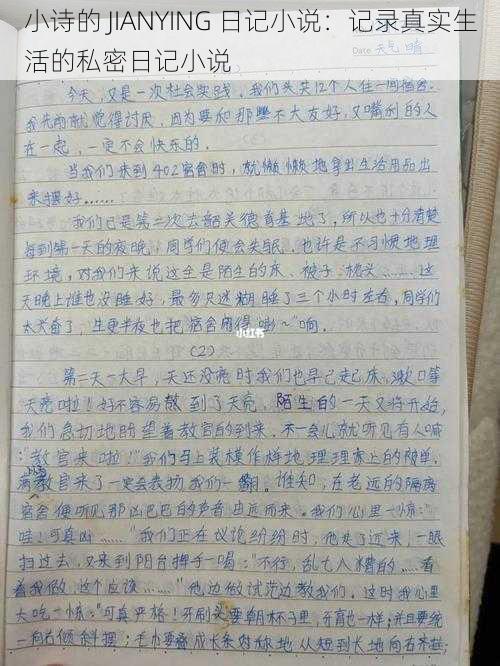 小诗的 JIANYING 日记小说：记录真实生
活的私密日记小说
Date 天气 晴
今天，又是一次社会实践，我们共12个人住一间宿舍.
我先前就觉得讨厌，因为要爬那 不大友好，又嘴利的人
在一起，一定不会快乐的.
当我们来到402宿舍时，就懒懒地拿出生活用品出
来摆好……
我们已是第二次去韶关德育基地了，所以也十分清楚
每到第一天的夜晚，同学们便会失眠，也许是不习惯地理
环境，对我们来说这全是陌生的床、被子、枕头……这
天晚上谁也没睡好，最多只迷糊睡了三个小时左右，同学们
太兴奋了，生更半夜也把宿舍闹得嘭~响.
小红书
(2)
第二天一大早，天还没亮时我们也早已起床，漱口等
天亮啦！好不容易熬到了天亮，陌生的一天又将开始，
我们急切地盼望着教官的到来，不一会儿就听见有人喊
:“教官来啦！”我们马上装模作样地理理床上的被单，
教官来了一定会表扬我们一翻。谁知，在老远的隔离
宿舍便听见那凶巴巴的声音由远而来。我们心里一惊：“
哇！可真凶……”我们正在议论纷纷时，他走了进来，一眼
扫过去，又来到阳台挥手一喝：“不行，乱七八糟的……看
着我做，这个应该……”他边做试范边教我们，这时我心里
大吃一惊：可真严格！牙刷头要朝杯子里，牙膏也一样；并且要统
一向右倾斜摆；毛巾要 成长条对称地从短到长地向右齐挂